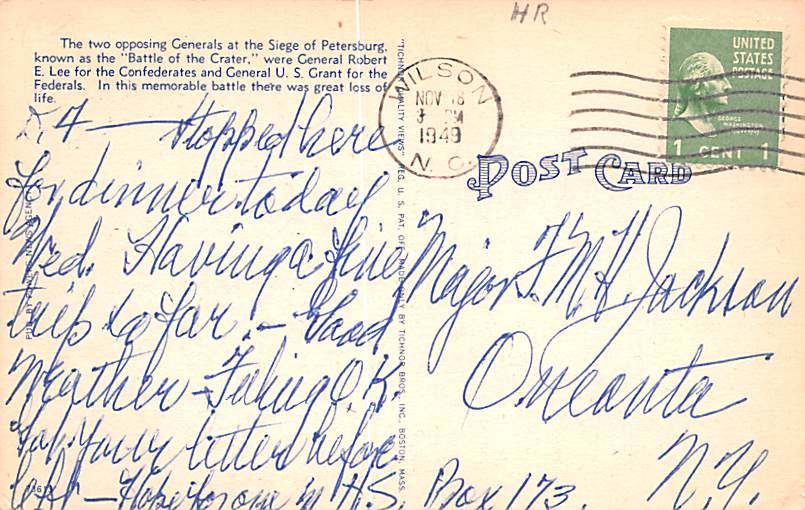 HR
The two opposing Generals at the Siege of Petersburg,
known as the "Battle of the Crater," were General Robert
E. Lee for the Confederates and General U. S. Grant for the
Federals. In this memorable battle there was great loss of
life.
WILSON
NOV 16
PM
1949
N. C.
UNITED
STATES
POSTAGE
GEORGE
WASHINGTON
1 CENT 1
POST CARD
Stopped here
for dinner today
Wed. Having a fine
trip so far. - Good
Weather - Feeling O.K.
your letter before
left - Hope
Major F. M. H. Jackson
Oneonta
Box 173. N.Y.
"TICHNOR QUALITY VIEWS" REG. U. S. PAT. OFF. MADE ONLY BY TICHNOR BROS., INC., BOSTON, MASS.